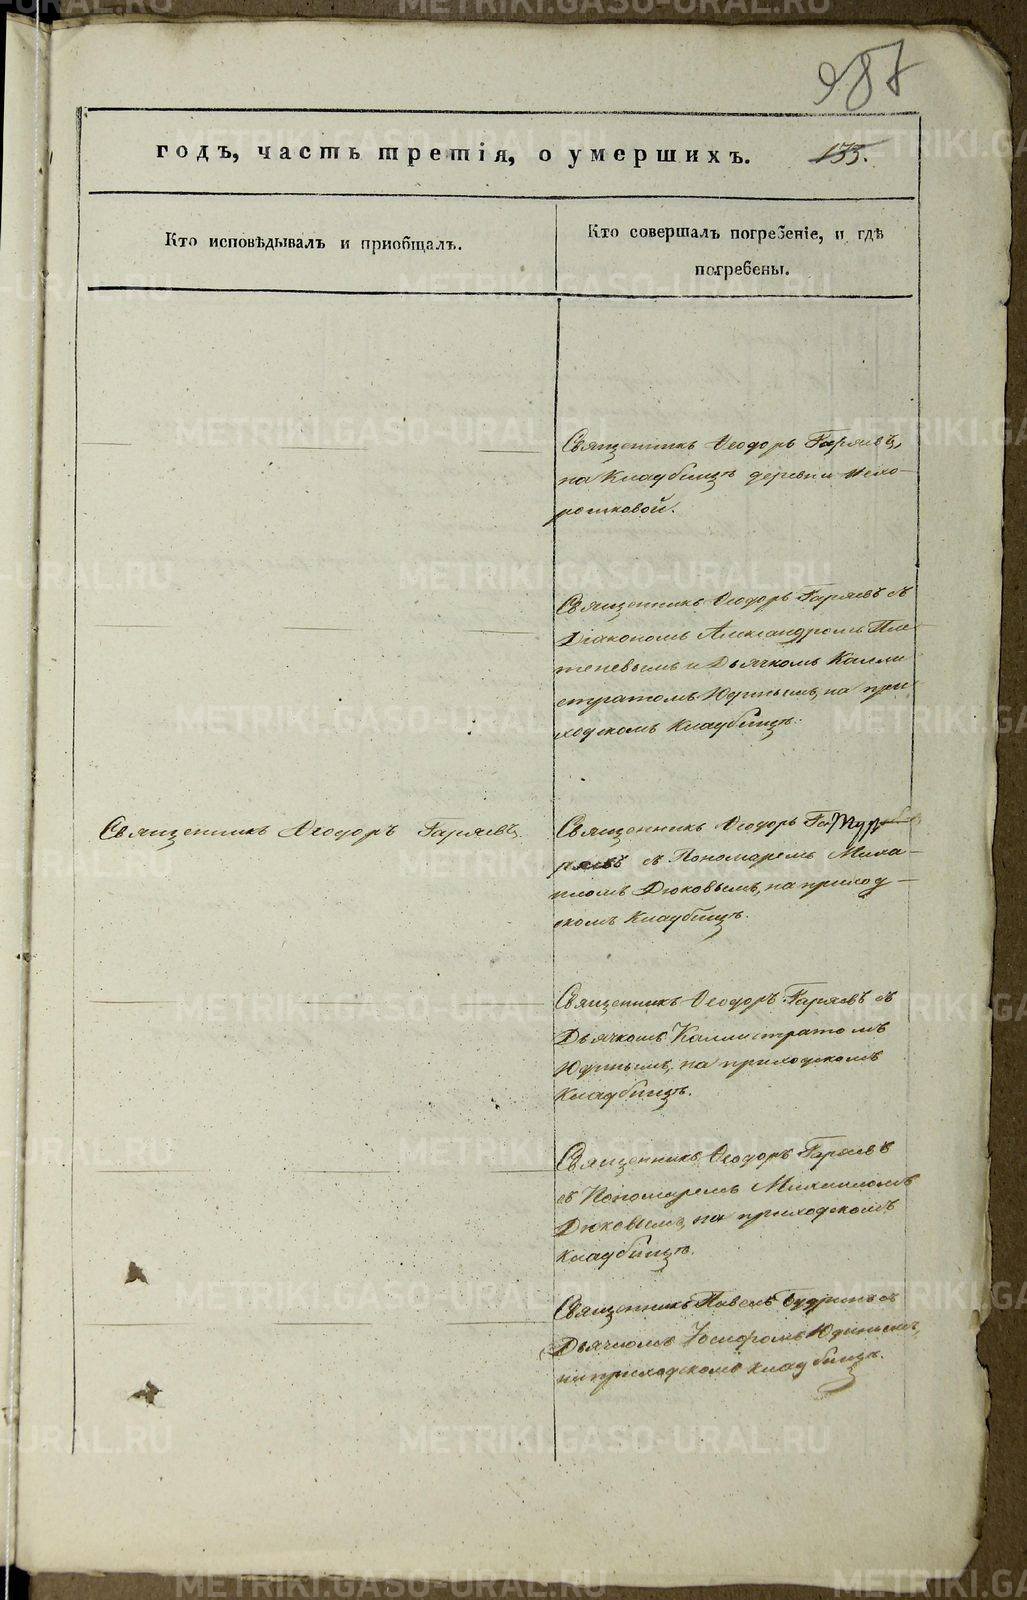 987
годъ, часть третія, о умершихъ. 135.
Кто исповѣдывалъ и приобщалъ.
Кто совершалъ погребеніе, и гдѣ
погребены.
Священникъ Ѳеодоръ Гаряевъ,
на Кладбищѣ деревни
Священникъ Ѳеодоръ Гаряевъ съ
Діакономъ Александромъ Пле
теневымъ и Дьячкомъ Калли
стратомъ Юдинымъ, на при
ходскомъ Кладбищѣ.
Священникъ Ѳеодоръ Гаряевъ
Священникъ Ѳеодоръ Га
ряевъ съ Пономаремъ Миха-
иломъ Дюковымъ, на приход-
скомъ Кладбищѣ.
Священникъ Ѳеодоръ Гаряевъ съ
Дьячкомъ Каллистратомъ
Юдинымъ, на приходскомъ
Кладбищѣ.
Священникъ Ѳеодоръ Гаряевъ
съ Пономаремъ Михаиломъ
Дюковымъ, на приходскомъ
Кладбищѣ.
Священникъ Павелъ Будринъ съ
Дьячкомъ Іосифомъ Юдинымъ,
на приходскомъ кладбищѣ.
METRIKI.GASO-URAL.RU